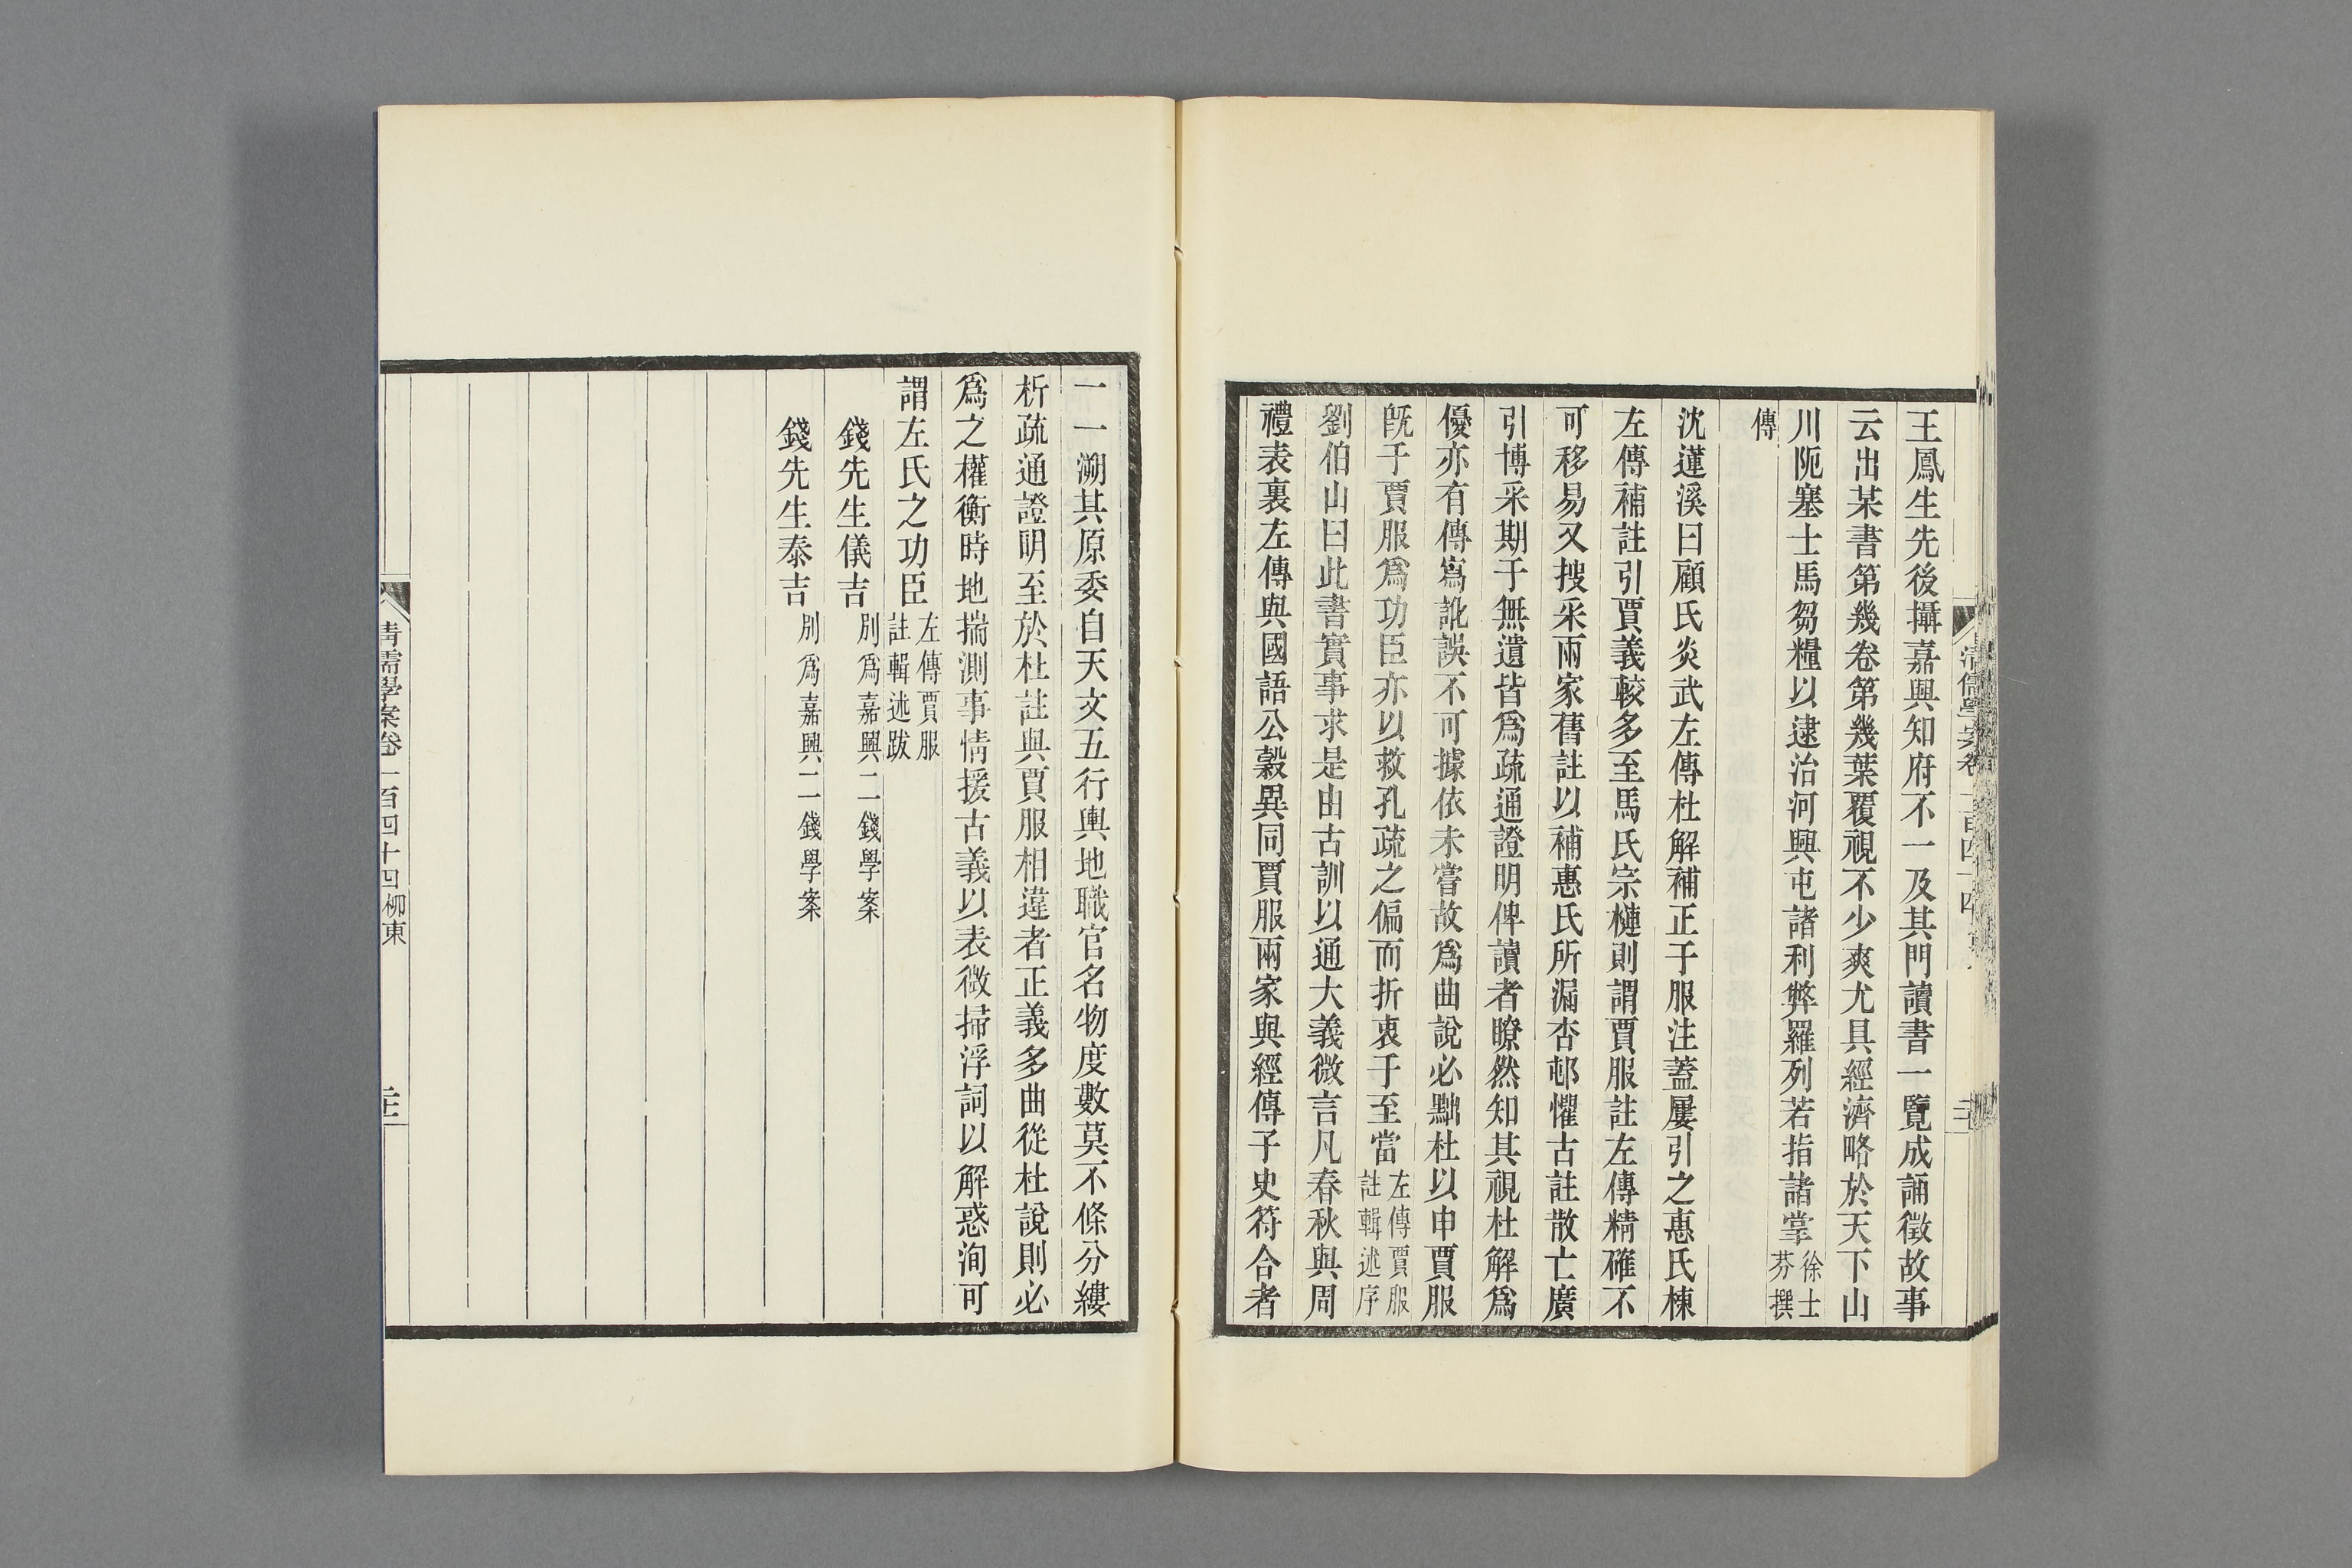 王鳳生先後攝嘉興知府不一及其門讀書一覽成誦徵故事
云出某書第幾卷第幾葉覆視不少爽尤具經濟略於天下山
川阨塞士馬芻糧以逮治河興屯諸利弊羅列若指諸掌徐士芬撰
傳
沈蓮溪曰顧氏炎武左傳杜解補正于服注蓋屢引之惠氏棟
左傳補註引賈義較多至馬氏宗槤則謂賈服註左傳精確不
可移易又搜采兩家舊註以補惠氏所漏杏邨懼古註散亡廣
引博采期于無遺皆爲疏通證明俾讀者瞭然知其視杜解爲
優亦有傳寫訛誤不可據依未嘗故爲曲說必黜杜以申賈服
旣于賈服爲功臣亦以救孔疏之偏而折衷于至當左傳賈服註輯述序
劉伯山曰此書實事求是由古訓以通大義微言凡春秋與周
禮表裏左傳與國語公穀異同賈服兩家與經傳子史符合者
一一溯其原委自天文五行輿地職官名物度數莫不條分縷
析疏通證明至於杜註與賈服相違者正義多曲從杜說則必
爲之權衡時地揣測事情援古義以表微掃浮詞以解惑洵可
謂左氏之功臣左傳賈服註輯述跋
錢先生儀吉別爲嘉興二錢學案
錢先生泰吉別爲嘉興二錢學案
清儒學案卷一百四十四柳東